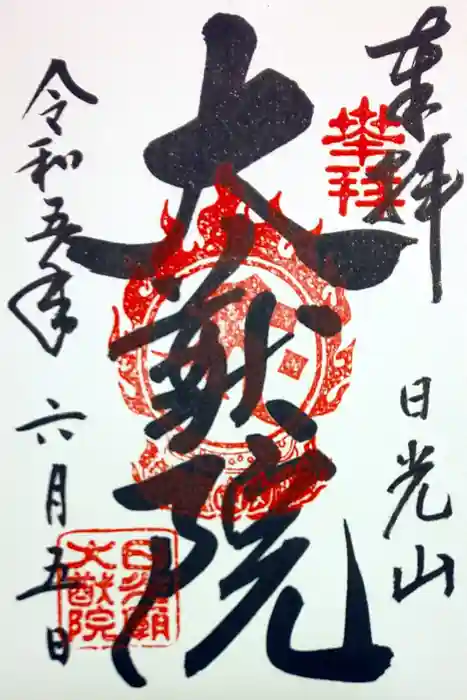 奉拝
日光山
大猷院
令和五年
六月五日
奉拝
日光廟
大猷院